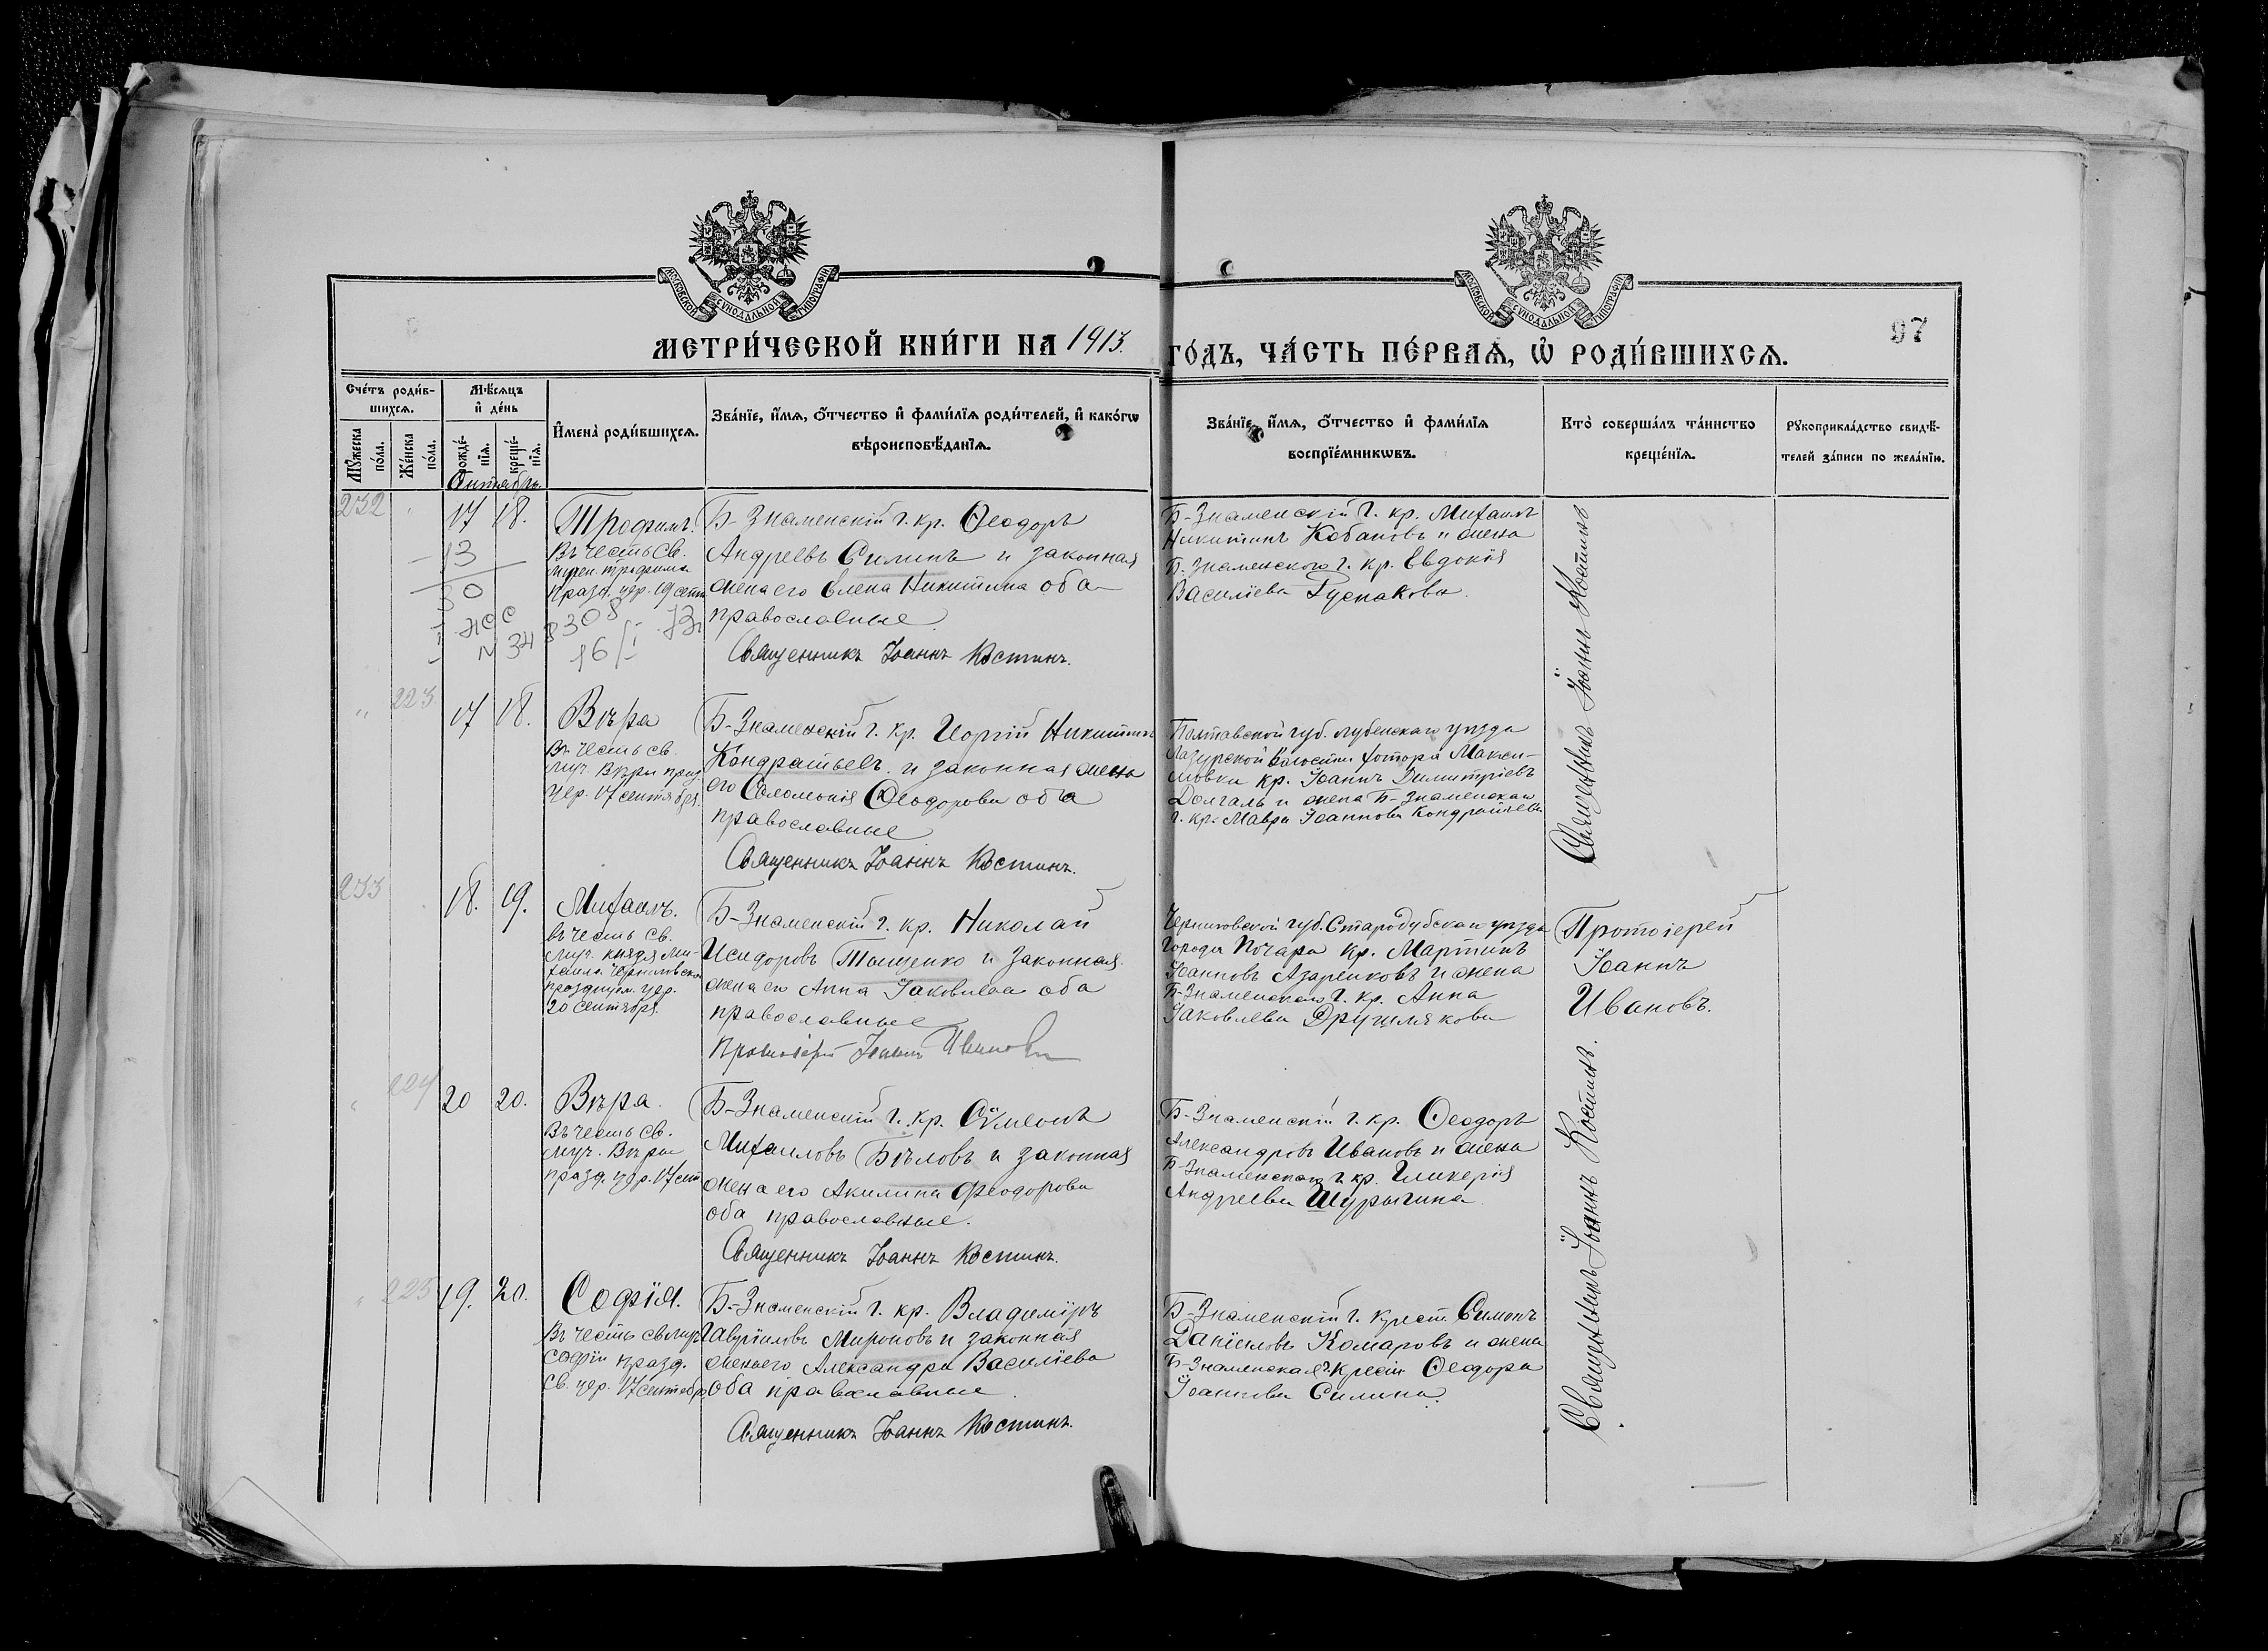 МОСКОВСКОЙ СѴНОДАЛЬНОЙ ТИПОГРАФІИ
МОСКОВСКОЙ СѴНОДАЛЬНОЙ ТИПОГРАФІИ
97
МЕТРИ́ЧЕСКОЙ КНИ́ГИ НА 1913.
ГО́ДЪ, ЧА́СТЬ ПЕ́РВАѦ, Ѡ҆ РОДИ́ВШИХСѦ.
Сче́тъ роди́в-
шихсѧ.
Мꙋ́жеска по́ла.
Же́нска по́ла.
Мѣ́сѧцъ
и҆ де́нь
рожде́-
нїѧ.
креще́-
нїѧ.
И҆мена̀ роди́вшихсѧ.
Зва́нїе, и҆́мѧ, ѻ҆́тчество и҆ фами́лїѧ роди́телей, и҆ како́гѡ
вѣроисповѣ́данїѧ.
Зва́нїе, и҆́мѧ, ѻ҆́тчество и҆ фами́лїѧ
воспрїе́мникѡвъ.
Кто̀ соверша́лъ та́инство
креще́нїѧ.
Рꙋкоприкла́дство свидѣ́-
телей за́писи по жела́нїю.
232
17 18.
Трофимъ.
Въ честь Св.
празд. цер. 19 сент.
13
30
16/I
Б-Знаменскій г. кр. Ѳеодоръ
Андреевъ Силинъ и законная
жена его Елена Никитина оба
православные
Священникъ Іоаннъ Костинъ.
Б-Знаменскій г. кр. Михаилъ
Никитинъ Кобановъ и жена
Б. Знаменскаго г. кр. Евдокія
Василіева Руснакова.
Священникъ Іоаннъ Костинъ
223
17 18.
Вѣра
Въ честь св.
муч. Вѣры празд.
цер. 17 сентября.
Б-Знаменскій г. кр. Георгій Никитинъ
Кондратьевъ и законная жена
его Соломонія Ѳеодорова оба
православные
Священникъ Іоаннъ Костинъ.
Полтавской губ. Лубенскаго уѣзда
Лазурской волости хутора Макси-
мовки кр. Іоаннъ Димитріевъ
Долгаль и жена Б-Знаменская
г. кр. Мавра Іоаннова Кондратьева
233
18. 19.
Михаилъ.
въ честь св.
муч. князя Ми-
хаила Черниговскаго
празднуем. цер.
20 сентября.
Б-Знаменскій г. кр. Николай
Исидоровъ Тищенко и законная
жена его Анна Іаковлева оба
православные
Протоіерей Іоаннъ Ивановъ
Черниговской губ. Стародубскаго уѣзда
города Почара кр. Мартинъ
Іоанновъ Азаренковъ и жена
Б-Знаменскаго г. кр. Анна
Іаковлева Друшлякова
Протоіерей
Іоаннъ
Ивановъ.
224
20 20.
Вѣра.
Въ честь св.
муч. Вѣры
празд. цер. 17 сент
Б-Знаменскій г. кр. Сѵмеонъ
Михаиловъ Бѣловъ и законная
жена его Акилина Ѳеодорова
оба православные.
Священникъ Іоаннъ Костинъ.
Б-Знаменскій г. кр. Ѳеодоръ
Александровъ Ивановъ и жена
Б-Знаменскаго г. кр. Гликерія
Андреева Шурыгина
Священникъ Іоаннъ Костинъ.
225
19. 20.
Софія.
Въ честь св. муч.
Софіи празд.
Св. цер. 17 сентябр.
Б-Знаменскій г. кр. Владиміръ
Гавріиловъ Мироновъ и законная
жена его Александра Василіева
оба православные.
Священникъ Іоаннъ Костинъ.
Б-Знаменскій г. крест. Симонъ
Даніиловъ Комаровъ и жена
Б-Знаменская г. крест. Ѳеодора
Іоаннова Силина.